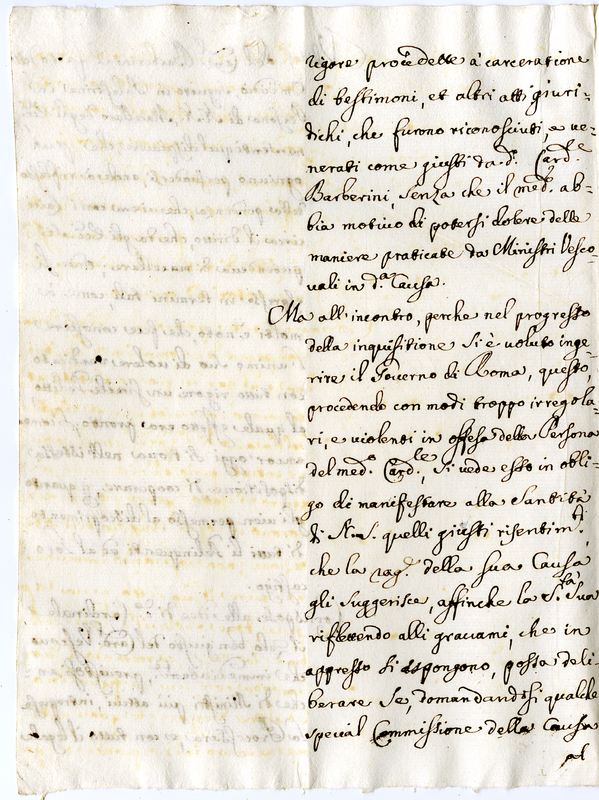 rigore procedette à carceratione
di testimoni, et altri atti giuri-
dichi, che furono riconosciuti, e ve-
nerati come giusti da d.º Card.le
Barberini, senza che il med.º ab-
bia motivo di potersi dolere delle
maniere praticate da Ministri Vesco-
uali in d.ª Causa.
Ma all'incontro, perche nel progresso
della inquisitione si è voluto inge-
rire il Governo di Roma, questo,
procedendo con modi troppo irregola-
ri, e violenti in offesa della Persona
del med.º Card.le, si vede esso in obli-
go di manifestare alla Santità
di N. S. quelli giusti risentim.ti,
che la rag.e della sua Causa
gli suggerisce, affinche la S.tà Sua
riflettendo alli gravami, che in
appresso si espongono, possa deli-
berare se, domandandosi qualche
special Commissione della Causa
ad